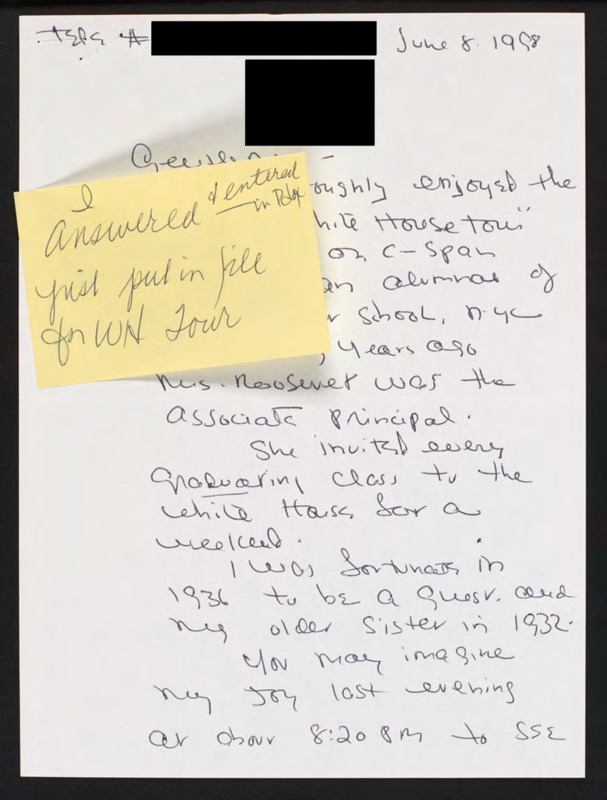 June 8. 1998
I
Answered & entered
in
just put in file
for WH Tour
oughly enjoyed the
hite House tour"
on C-Span
an alumnae of
r School, NYC
years ago
Mrs. Roosevelt was the
Associate Principal.
She invited every
graduating class to the
White House for a
weekend.
I was fortunate in
1936 to be a guest. and
my older sister in 1932.
You may imagine
my joy last evening
at about 8:20 PM to SEE